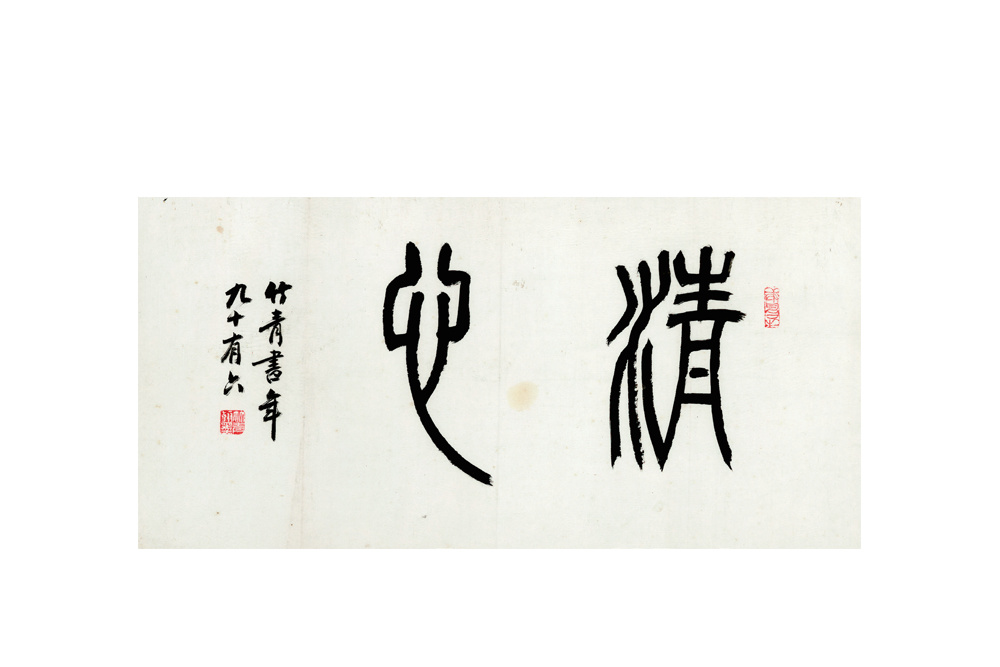 清心
竹青書年
九十有六